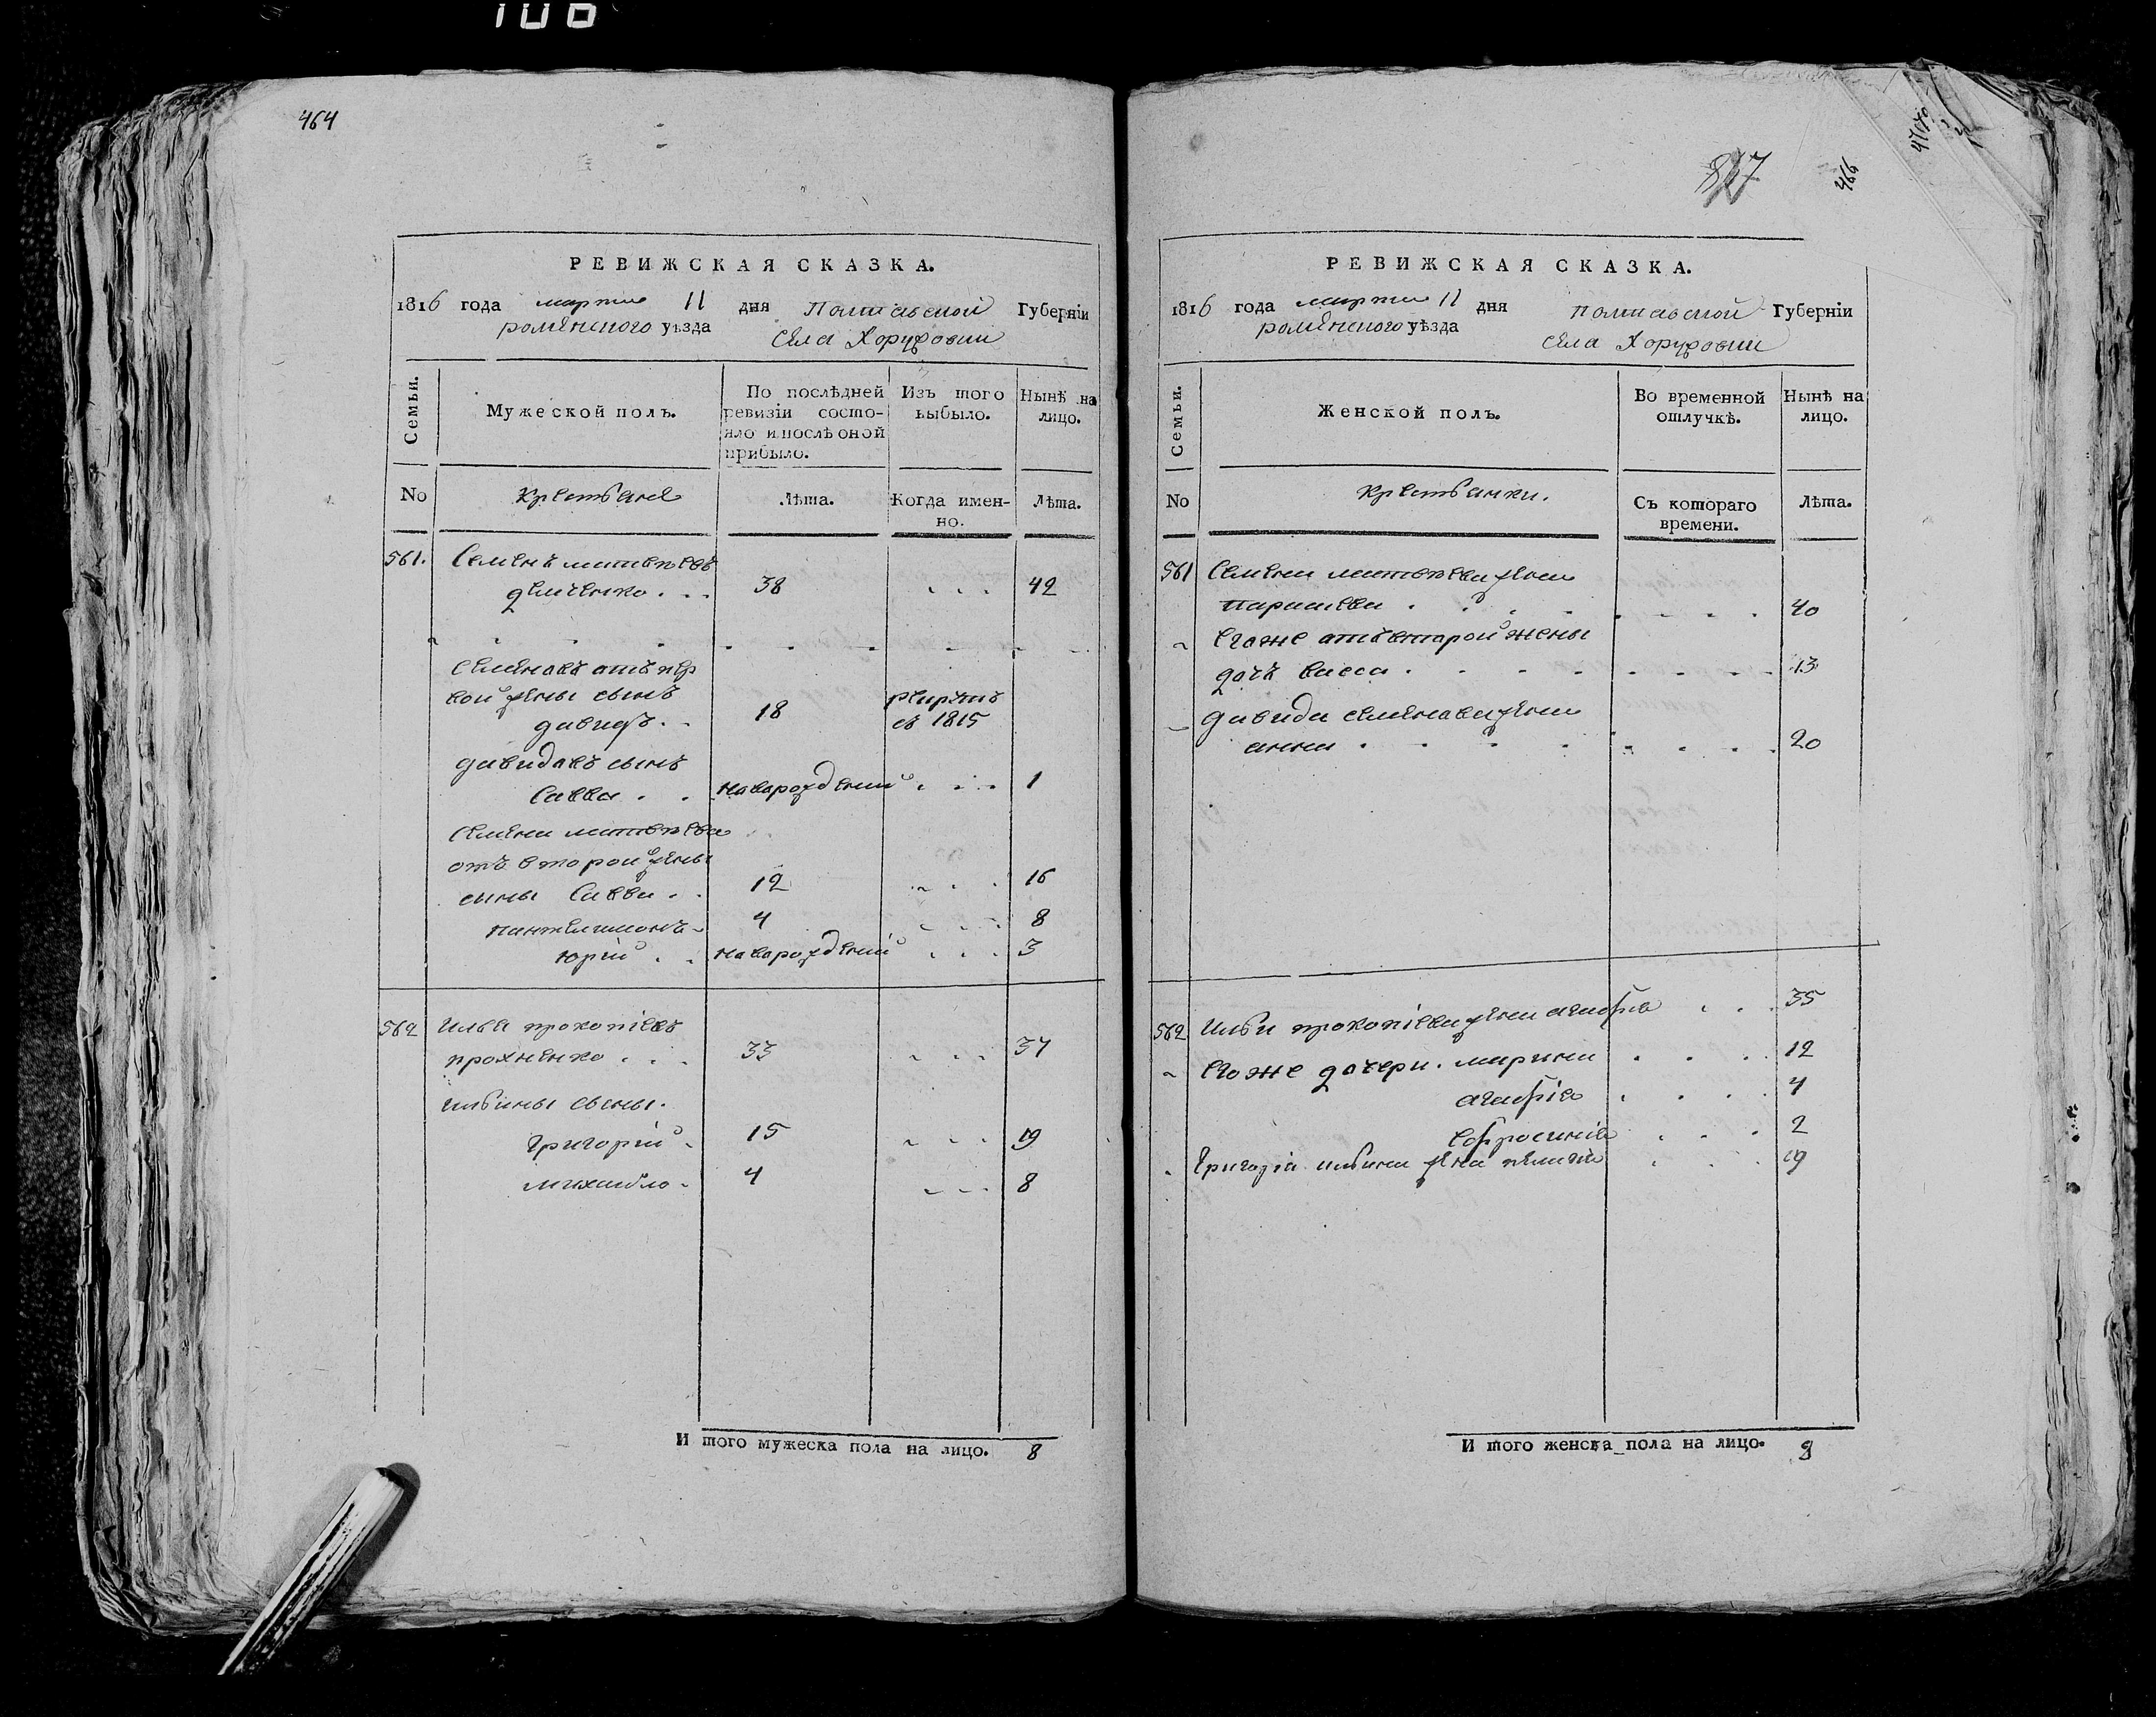 106
464
РЕВИЖСКАЯ СКАЗКА.
1816 года марта 11 дня Полтавской Губерніи
роменского уѣзда
Села Хоружовки
Семьи.
Мужеской полъ.
По послѣдней ревизіи состояло и послѣ оной прибыло.
Изъ того выбыло.
Нынѣ на лицо.
No
Крестьяне
Лѣта.
Когда именно.
Лѣта.
561. Семенъ матвѣевъ
демченко . . . 38 . . . 42
Семеновъ отъ пер
вой жены сынъ
давидъ . . 18 рекрутъ въ 1815
давидовъ сынъ
Савва . . новорожденый . . . 1
Семена матвѣева
отъ второй жены
сыны Савва . . 12 . . . 16
пантелимонъ 4 . . . 8
юрій . . новорожденій . . . 3
562 Илья прокопіевъ
прохненко . . . 33 . . . 37
ильины сыны.
григорій 15 . . . 19
михайло 4 . . . 8
И того мужеска пола на лицо. 8
817
466
РЕВИЖСКАЯ СКАЗКА.
1816 года марта 11 дня полтавской Губерніи
роменского уѣзда
Села Хоружовки
Семьи.
Женской полъ.
Во временной отлучкѣ.
Нынѣ на лицо.
No
Крестьянки.
Съ котораго времени.
Лѣта.
561 Семена матвѣева жена
параскева . . . . 40
его же отъ второй жены
дочь васса . . . . 13
давида семенова жена
анна . . . . 20
562 ильи прокопіева жена агафія . . . 35
его же дочери. марина . . . 12
агафія . . . . 4
ефросинія . . . 2
григорія ильина жена пелагия . . . 19
И того женска пола на лицо. 8